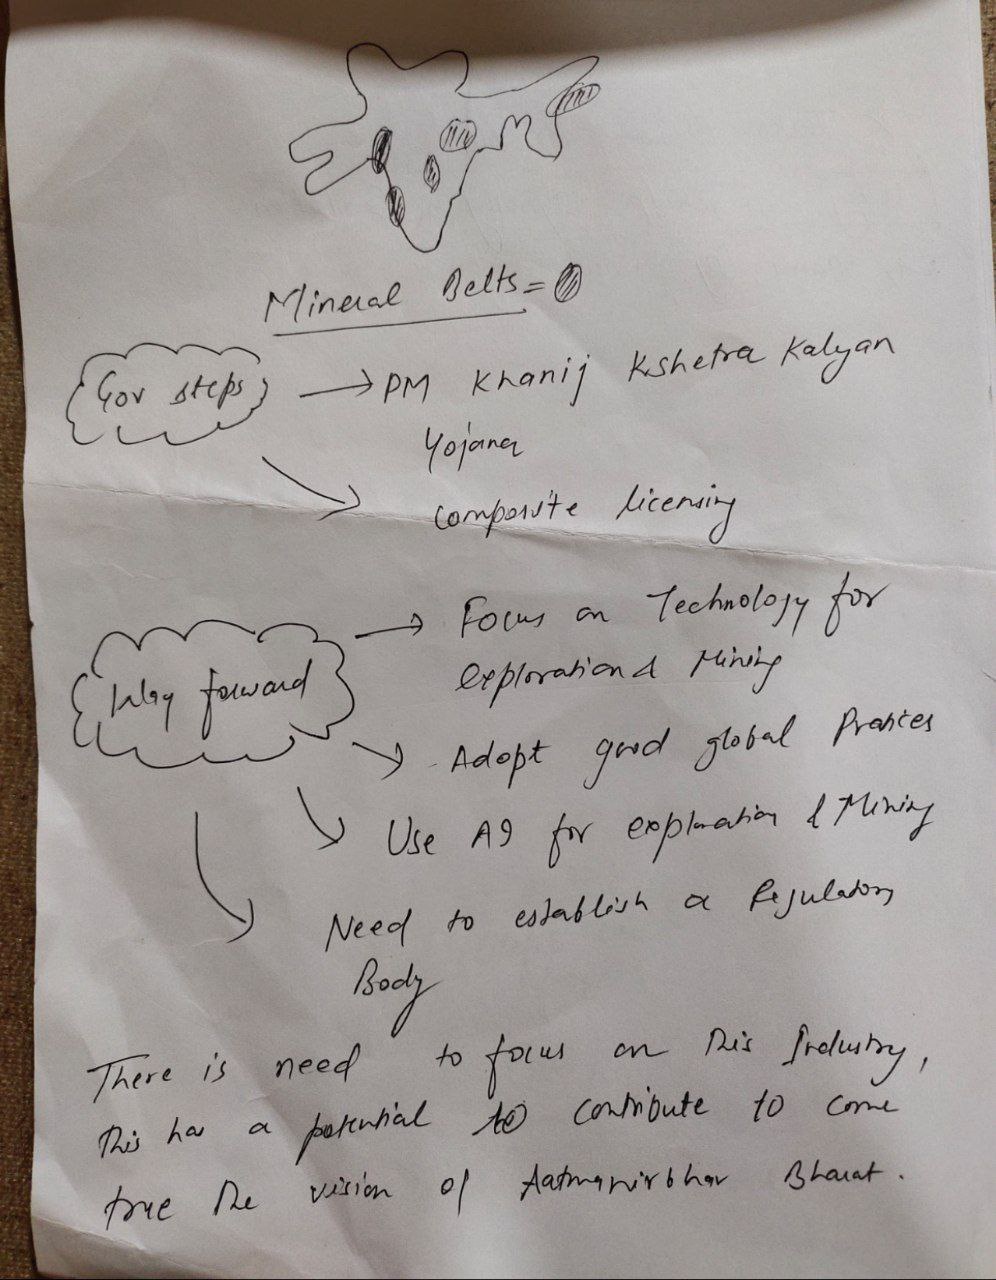 Mineral Belts =
Gov steps → PM Khanij Kshetra Kalyan
Yojana
composite licensing
Way forward → Focus on Technology for
exploration & Mining
Adopt good global Pratices
Use AI for exploration & Mining
Need to establish a Regulatory
Body
There is need to focus on this Industry,
this has a potential to contribute to come
true the vision of Aatmanirbhar Bharat.